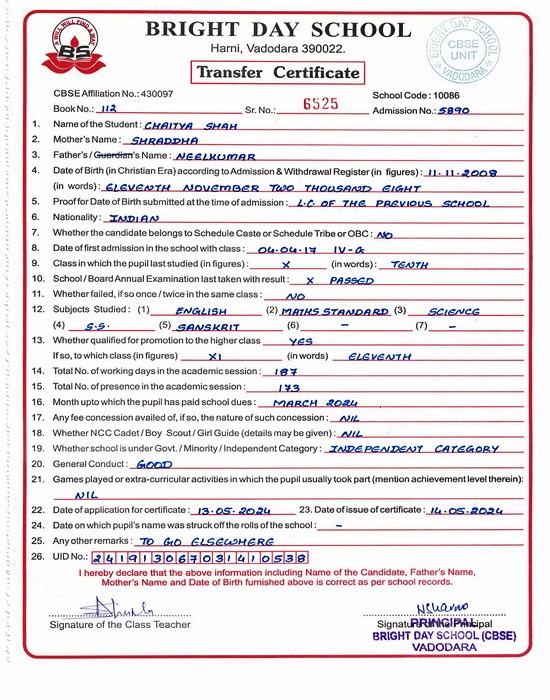 WILL WILL FIND A WAY
BS
BRIGHT DAY SCHOOL
Harni, Vadodara 390022.
Transfer Certificate
BRIGHT DAY SCHOOL
CBSE
UNIT
VADODARA
CBSE Affiliation No.: 430097 School Code : 10086
Book No.: 112 Sr. No.: 6525 Admission No.: 5890
1. Name of the Student : CHAITYA SHAH
2. Mother's Name : SHRADDHA
3. Father's / Guardian's Name : NEELKUMAR
4. Date of Birth (in Christian Era) according to Admission & Withdrawal Register (in figures) : 11.11.2008
(in words) : ELEVENTH NOVEMBER TWO THOUSAND EIGHT
5. Proof for Date of Birth submitted at the time of admission : L.C. OF THE PREVIOUS SCHOOL
6. Nationality : INDIAN
7. Whether the candidate belongs to Schedule Caste or Schedule Tribe or OBC : NO
8. Date of first admission in the school with class : 04.04.17 IV-G
9. Class in which the pupil last studied (in figures) : X (in words) : TENTH
10. School / Board Annual Examination last taken with result : X PASSED
11. Whether failed, if so once / twice in the same class : NO
12. Subjects Studied : (1) ENGLISH (2) MATHS STANDARD (3) SCIENCE
(4) S.S. (5) SANSKRIT (6) – (7) –
13. Whether qualified for promotion to the higher class YES
If so, to which class (in figures) XI (in words) ELEVENTH
14. Total No. of working days in the academic session : 187
15. Total No. of presence in the academic session : 173
16. Month upto which the pupil has paid school dues : MARCH 2024
17. Any fee concession availed of, if so, the nature of such concession : NIL
18. Whether NCC Cadet / Boy Scout / Girl Guide (details may be given) : NIL
19. Whether school is under Govt. / Minority / Independent Category : INDEPENDENT CATEGORY
20. General Conduct : GOOD
21. Games played or extra-curricular activities in which the pupil usually took part (mention achievement level therein):
NIL
22. Date of application for certificate : 13.05.2024 23. Date of issue of certificate : 14.05.2024
24. Date on which pupil's name was struck off the rolls of the school : –
25. Any other remarks : TO GO ELSEWHERE
26. UID No.: 241913067031410538
I hereby declare that the above information including Name of the Candidate, Father's Name,
Mother's Name and Date of Birth furnished above is correct as per school records.
Signature of the Class Teacher Signature of the Principal
PRINCIPAL
BRIGHT DAY SCHOOL (CBSE)
VADODARA